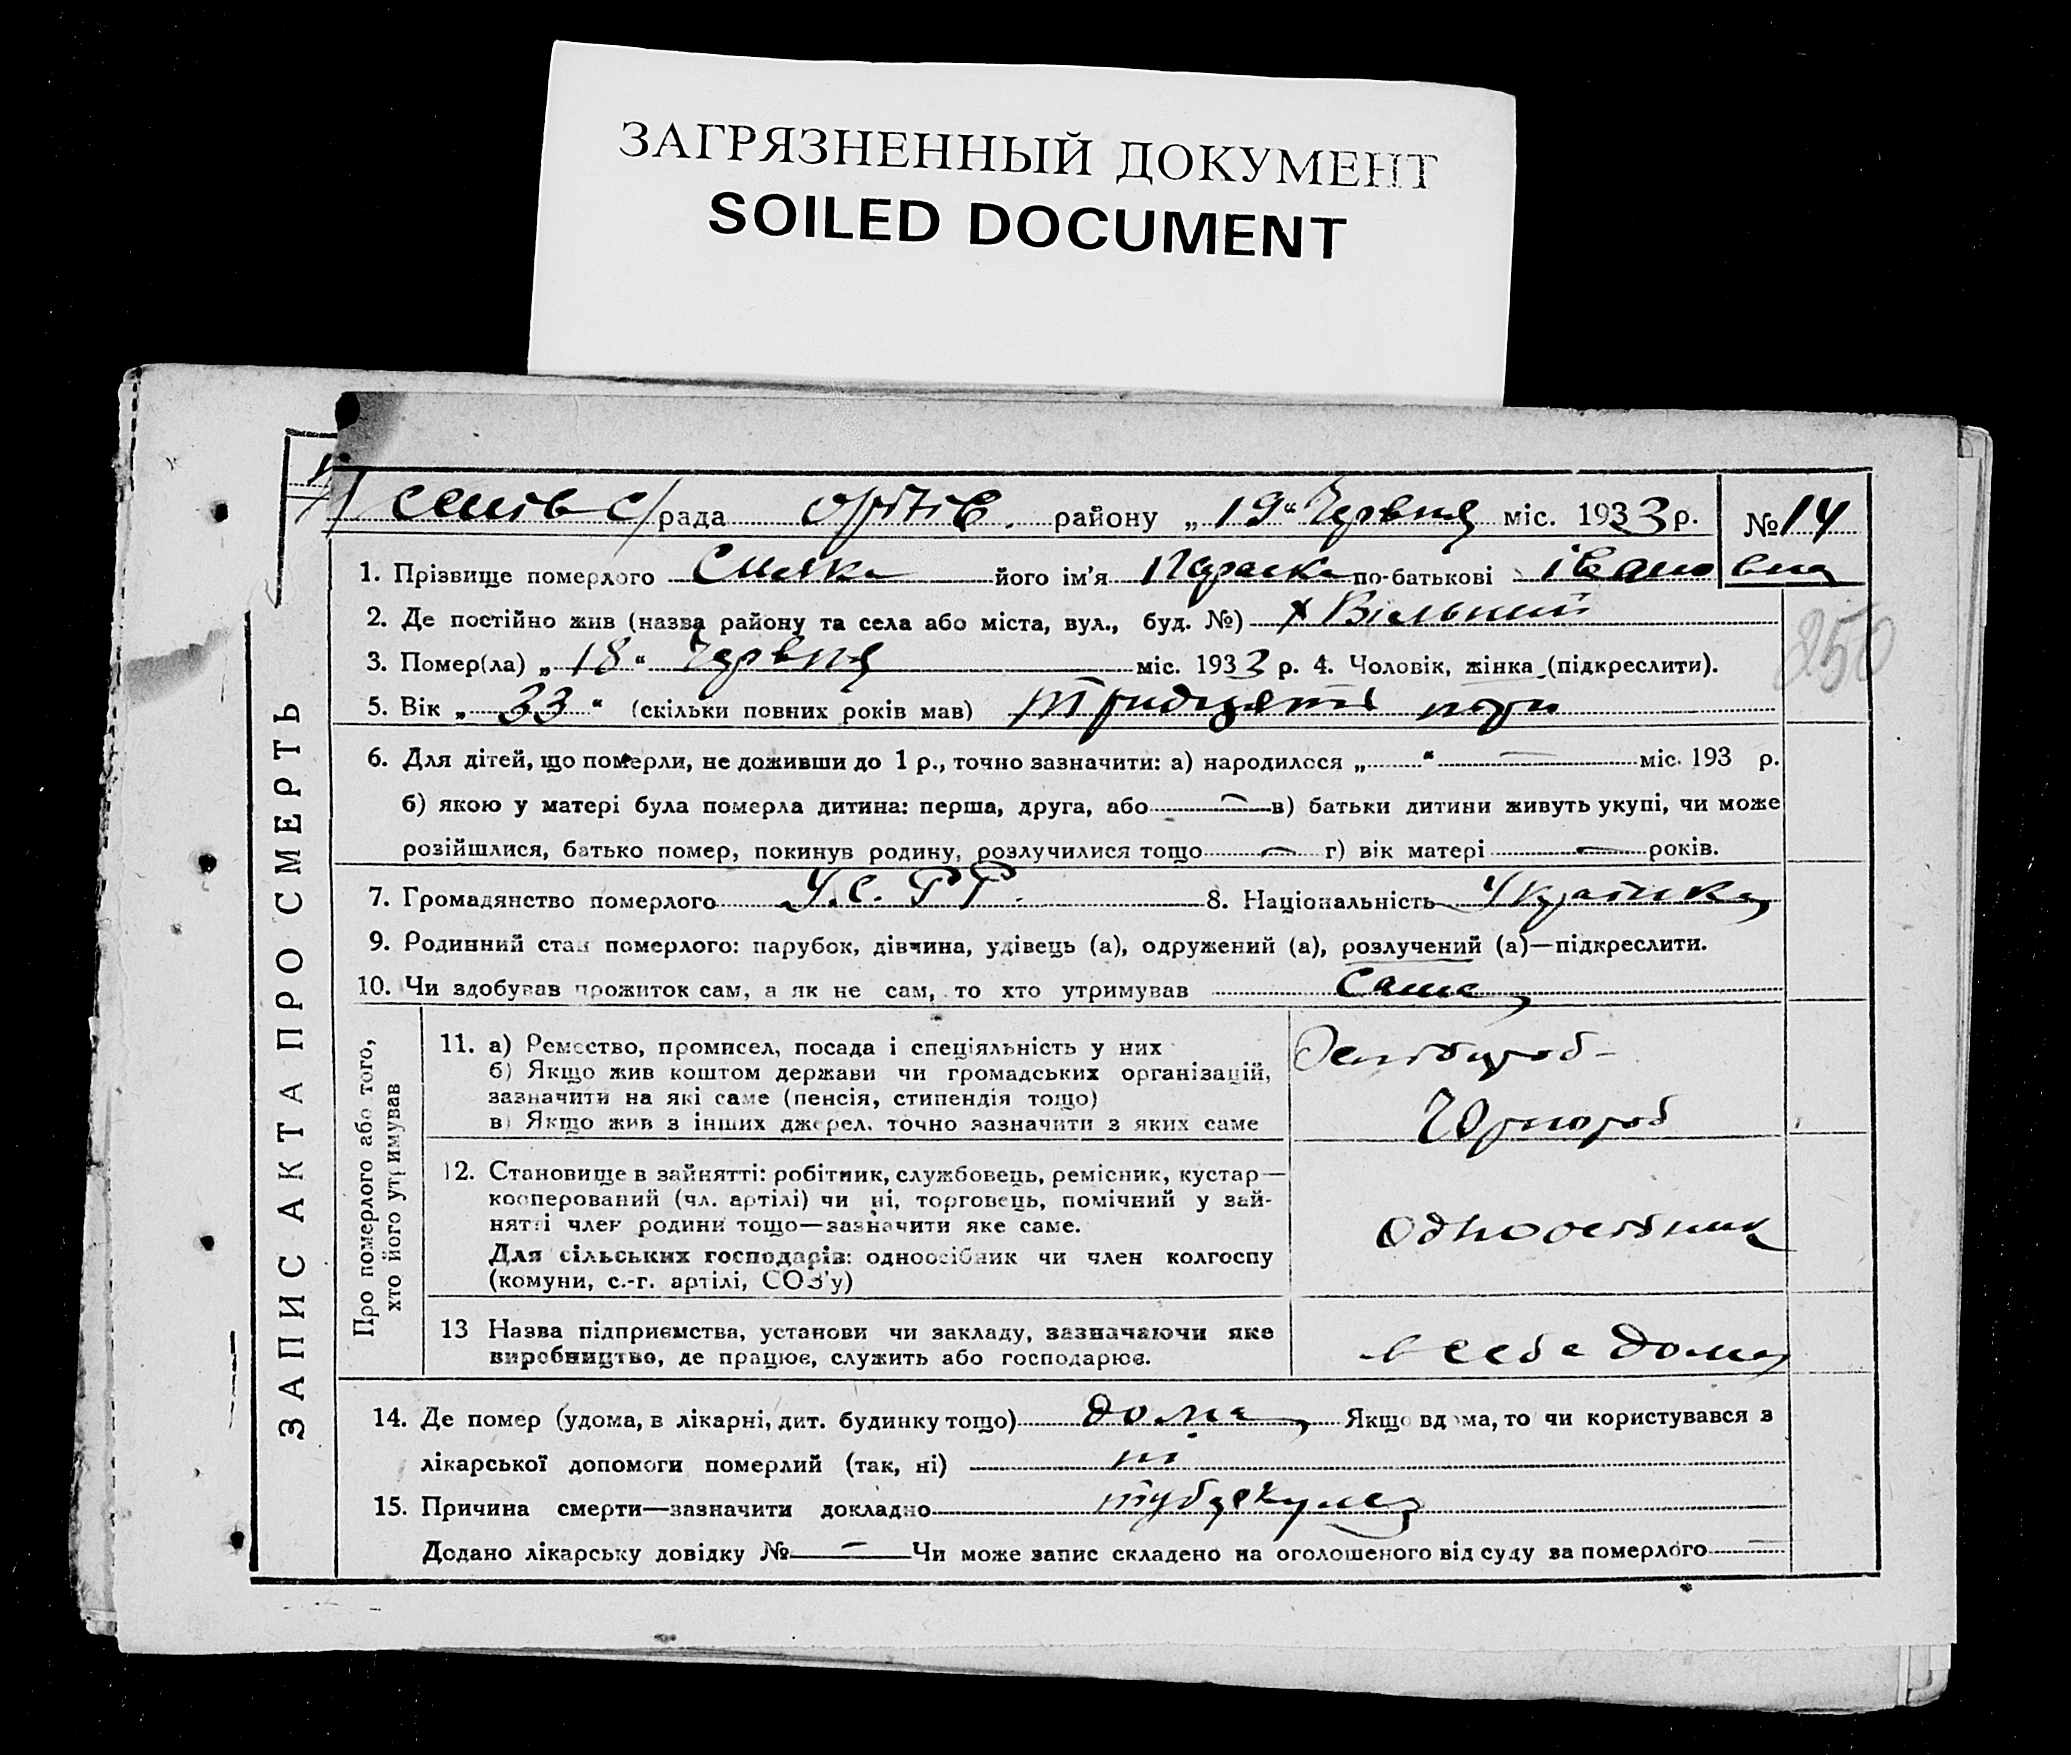 ЗАГРЯЗНЕННЫЙ ДОКУМЕНТ
SOILED DOCUMENT
ЗАПИС АКТА ПРО СМЕРТЬ
с/рада району „19“ Червня міс. 1933 р. № 14
1. Прізвище померлого його ім’я Параска по-батькові івановна
2. Де постійно жив (назва району та села або міста, вул., буд. №) х Вільний
3. Помер(ла) „18“ Червня міс. 1933 р. 4. Чоловік, жінка (підкреслити).
250
5. Вік „33“ (скільки повних років мав) тридцять три
6. Для дітей, що померли, не доживши до 1 р., точно зазначити: а) народилося „ “ — міс. 193 р.
б) якою у матері була померла дитина: перша, друга, або — в) батьки дитини живуть укупі, чи може
розійшлися, батько помер, покинув родину, розлучилися тощо — г) вік матері — років.
7. Громадянство померлого У.С.Р.Р. 8. Національність Українка
9. Родинний стан померлого: парубок, дівчина, удівець (а), одружений (а), розлучений (а)—підкреслити.
10. Чи здобував прожиток сам, а як не сам, то хто утримував сама
Про померлого або того,
хто його утримував
11. а) Ремество, промисел, посада і спеціяльність у них
б) Якщо жив коштом держави чи громадських організацій,
зазначити на які саме (пенсія, стипендія тощо)
в) Якщо жив з інших джерел, точно зазначити з яких саме
Хлібороб
Чорнороб
12. Становище в зайнятті: робітник, службовець, ремісник, кустар—
кооперований (чл. артілі) чи ні, торговець, помічний у зай-
нятті член родини тощо—зазначити яке саме.
Для сільських господарів: одноосібник чи член колгоспу
(комуни, с.-г. артілі, СОЗ’у)
одноосібник
13 Назва підприємства, установи чи закладу, зазначаючи яке
виробництво, де працює, служить або господарює.
в себе дома
14. Де помер (удома, в лікарні, дит. будинку тощо) дома Якщо вдома, то чи користувався з
лікарської допомоги померлий (так, ні) ні
15. Причина смерти—зазначити докладно туберкульоз
Додано лікарську довідку № — Чи може запис складено на оголошеного від суду за померлого —